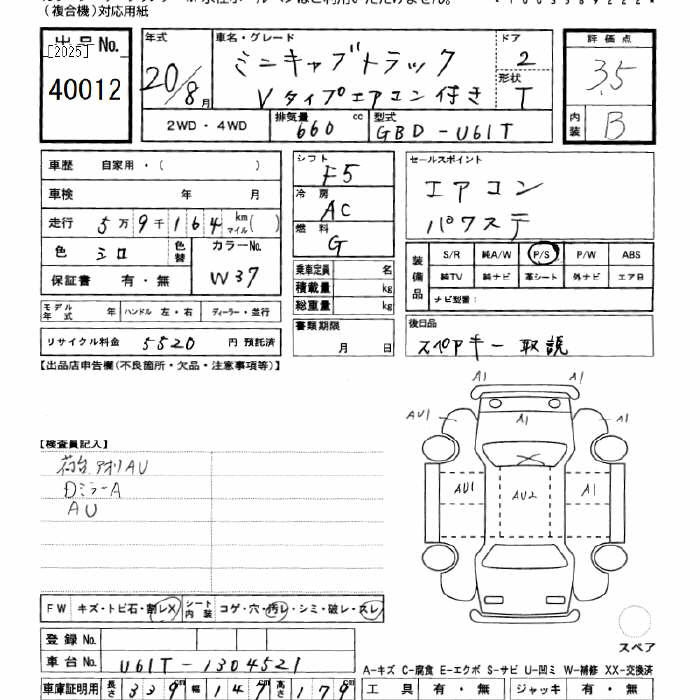 (複合機)対応用紙
出品No.
[2025]
40012
年式
20/8月
車名・グレード
ミニキャブトラック
Vタイプエアコン付き
ドア
2
形状
T
評価点
3.5
内装
B
2WD・4WD
排気量
660 cc
型式
GBD-U61T
車歴 自家用・( )
車検 年 月
走行 5万9千164 km マイル( )
色 シロ
色替
カラーNo.
W37
保証書 有・無
モデル年式 年
ハンドル 左・右
ディーラー・並行
リサイクル料金 5520 円 預託済
シフト
F5
冷房
AC
燃料
G
乗車定員 名
積載量 kg
総重量 kg
書類期限
月 日
セールスポイント
エアコン
パワステ
装備品
S/R 純A/W P/S P/W ABS
純TV 純ナビ 革シート 外ナビ エアB
ナビ型番:
後日品
スペアキー 取説
【出品店申告欄(不良箇所・欠品・注意事項等)】
【検査員記入】
荷台、アオリAU
DミラーA
AU
A1
A1
AU1
A1
A1
AU1
AU2
A1
スペア
FW キズ・トビ石・割レX
シート内装 コゲ・穴・汚レ・シミ・破レ・スレ
登録No.
車台No. U61T-1304521
車庫証明用 長さ 339cm 幅 147cm 高さ 179cm
A-キズ C-腐食 E-エクボ S-サビ U-凹ミ W-補修 XX-交換済
工具 有・無 ジャッキ 有・無